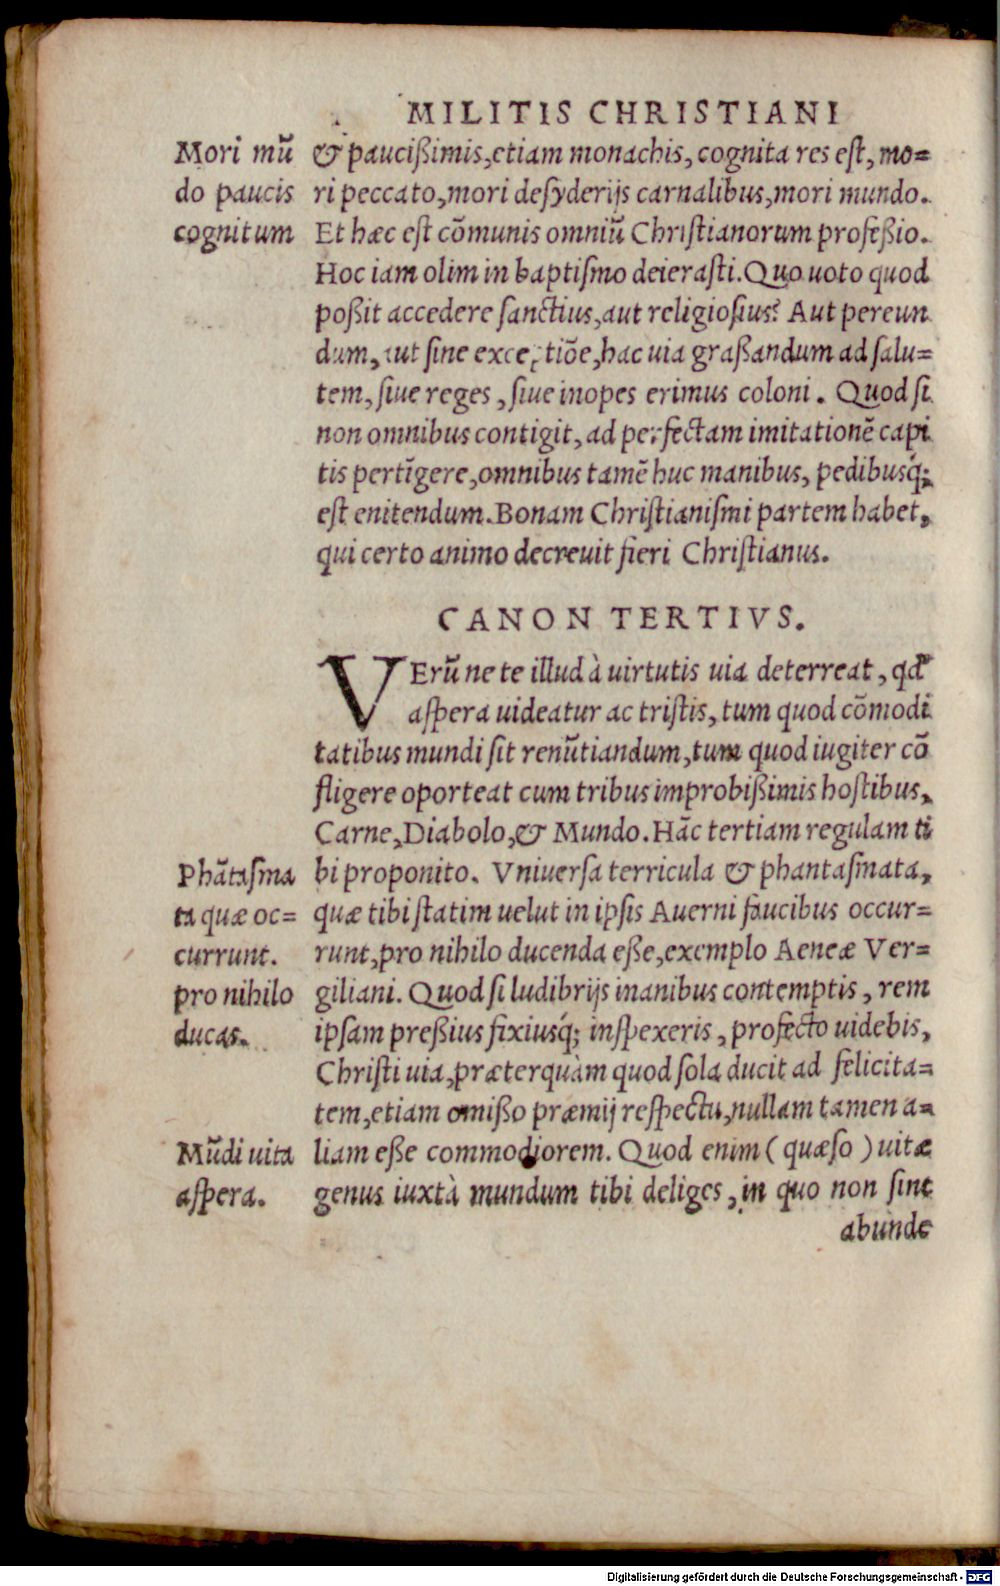 MILITIS CHRISTIANI
Mori mũ
do paucis
cognitum
& paucißimis, etiam monachis, cognita res eſt, mo=
ri peccato, mori deſyderijs carnalibus, mori mundo.
Et hæc eſt cõmunis omniũ Chriſtianorum profeßio.
Hoc iam olim in baptiſmo deieraſti. Quo uoto quod
poßit accedere ſanctius, aut religioſius? Aut pereun
dum, aut ſine exceptiõe, hac uia graßandum ad ſalu=
tem, ſiue reges, ſiue inopes erimus coloni. Quod ſi
non omnibus contigit, ad perfectam imitationẽ capi
tis pertĩgere, omnibus tamẽ huc manibus, pedibusq́;
eſt enitendum. Bonam Chriſtianiſmi partem habet,
qui certo animo decreuit fieri Chriſtianus.
CANON TERTIVS.
VErũ ne te illud à uirtutis uia deterreat, qđ
aſpera uideatur ac triſtis, tum quod cõmodi
tatibus mundi ſit renũtiandum, tum quod iugiter cõ
fligere oporteat cum tribus improbißimis hoſtibus,
Carne, Diabolo, & Mundo. Hãc tertiam regulam ti
bi proponito. Vniuerſa terricula & phantaſmata,
quæ tibi ſtatim uelut in ipſis Auerni faucibus occur=
runt, pro nihilo ducenda eße, exemplo Aeneæ Ver=
giliani. Quod ſi ludibrijs inanibus contemptis, rem
ipſam preßius fixiusq́; inſpexeris, profecto uidebis,
Chriſti uia, præterquàm quod ſola ducit ad felicita=
tem, etiam omißo præmij reſpectu, nullam tamen a=
liam eße commodiorem. Quod enim (quæſo) uitæ
genus iuxtà mundum tibi deliges, in quo non ſint
Phãtaſma
ta quæ oc=
currunt.
pro nihilo
ducas.
Mũdi uita
aſpera.
abunde
Digitalisierung gefördert durch die Deutsche Forschungsgemeinschaft - DFG